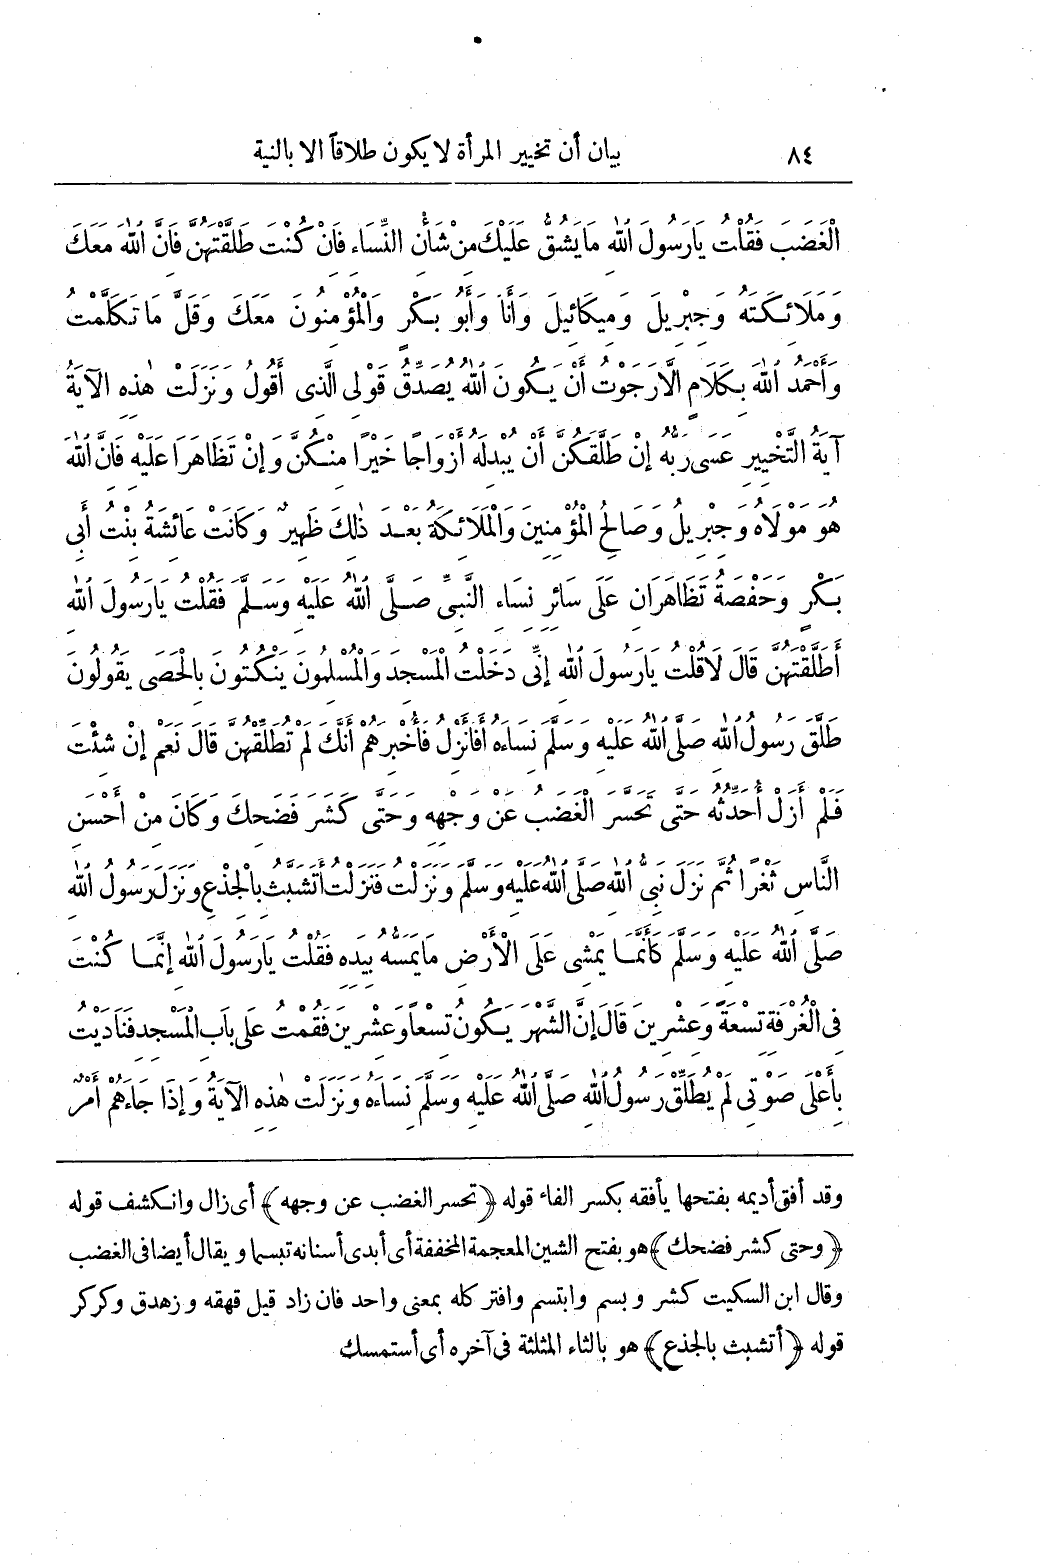 ٨٤ بيان أن تخيير المرأة لا يكون طلاقاً الا بالنية
الْغَضَبَ فَقُلْتُ يَا رَسُولَ اللهِ مَا يَشُقُّ عَلَيْكَ مِنْ شَأْنِ النِّسَاءِ فَانْ كُنْتَ طَلَّقْتَهُنَّ فَانَّ اللهَ مَعَكَ
وَمَلَائِكَتَهُ وَجِبْرِيلَ وَمِيكَائِيلَ وَأَنَا وَأَبُو بَكْرٍ وَالْمُؤْمِنُونَ مَعَكَ وَقَلَّ مَا تَكَلَّمْتُ
وَأَحْمَدُ اللهَ بِكَلَامٍ الَّا رَجَوْتُ أَنْ يَكُونَ اللهُ يُصَدِّقُ قَوْلِى الَّذِى أَقُولُ وَنَزَلَتْ هٰذِهِ الْآيَةُ
آيَةُ التَّخْيِيرِ عَسَى رَبُّهُ إِنْ طَلَّقَكُنَّ أَنْ يُبْدِلَهُ أَزْوَاجًا خَيْرًا مِنْكُنَّ وَإِنْ تَظَاهَرَا عَلَيْهِ فَانَّ اللهَ
هُوَ مَوْلَاهُ وَجِبْرِيلُ وَصَالِحُ الْمُؤْمِنِينَ وَالْمَلَائِكَةُ بَعْدَ ذٰلِكَ ظَهِيرٌ وَكَانَتْ عَائِشَةُ بِنْتُ أَبِى
بَكْرٍ وَحَفْصَةُ تَظَاهَرَانِ عَلَى سَائِرِ نِسَاءِ النَّبِىِّ صَلَّى اللهُ عَلَيْهِ وَسَلَّمَ فَقُلْتُ يَا رَسُولَ اللهِ
أَطَلَّقْتَهُنَّ قَالَ لَا قُلْتُ يَا رَسُولَ اللهِ إِنِّى دَخَلْتُ الْمَسْجِدَ وَالْمُسْلِمُونَ يَنْكُتُونَ بِالْحَصَى يَقُولُونَ
طَلَّقَ رَسُولُ اللهِ صَلَّى اللهُ عَلَيْهِ وَسَلَّمَ نِسَاءَهُ أَفَأَنْزِلُ فَأُخْبِرَهُمْ أَنَّكَ لَمْ تُطَلِّقْهُنَّ قَالَ نَعَمْ إِنْ شِئْتَ
فَلَمْ أَزَلْ أُحَدِّثُهُ حَتَّى تَحَسَّرَ الْغَضَبُ عَنْ وَجْهِهِ وَحَتَّى كَشَرَ فَضَحِكَ وَكَانَ مِنْ أَحْسَنِ
النَّاسِ ثَغْرًا ثُمَّ نَزَلَ نَبِىُّ اللهِ صَلَّى اللهُ عَلَيْهِ وَسَلَّمَ وَنَزَلْتُ فَنَزَلْتُ أَتَشَبَّثُ بِالْجِذْعِ وَنَزَلَ رَسُولُ اللهِ
صَلَّى اللهُ عَلَيْهِ وَسَلَّمَ كَأَنَّمَا يَمْشِى عَلَى الْأَرْضِ مَا يَمَسُّهُ بِيَدِهِ فَقُلْتُ يَا رَسُولَ اللهِ إِنَّمَا كُنْتَ
فِى الْغُرْفَةِ تِسْعَةً وَعِشْرِينَ قَالَ إِنَّ الشَّهْرَ يَكُونُ تِسْعًا وَعِشْرِينَ فَقُمْتُ عَلَى بَابِ الْمَسْجِدِ فَنَادَيْتُ
بِأَعْلَى صَوْتِى لَمْ يُطَلِّقْ رَسُولُ اللهِ صَلَّى اللهُ عَلَيْهِ وَسَلَّمَ نِسَاءَهُ وَنَزَلَتْ هٰذِهِ الْآيَةُ وَإِذَا جَاءَهُمْ أَمْرٌ
وقد أفق أديمه بفتحها يأفقه بكسر الفاء قوله ﴿تحسر الغضب عن وجهه﴾ أى زال وانكشف قوله
﴿وحتى كشر فضحك﴾ هو بفتح الشين المعجمة المخففة أى أبدى أسنانه تبسما ويقال أيضا فى الغضب
وقال ابن السكيت كشر وبسم وابتسم وافتر كله بمعنى واحد فان زاد قيل قهقه وزهدق وكركر
قوله ﴿أتشبث بالجذع﴾ هو بالثاء المثلثة فى آخره أى أستمسك